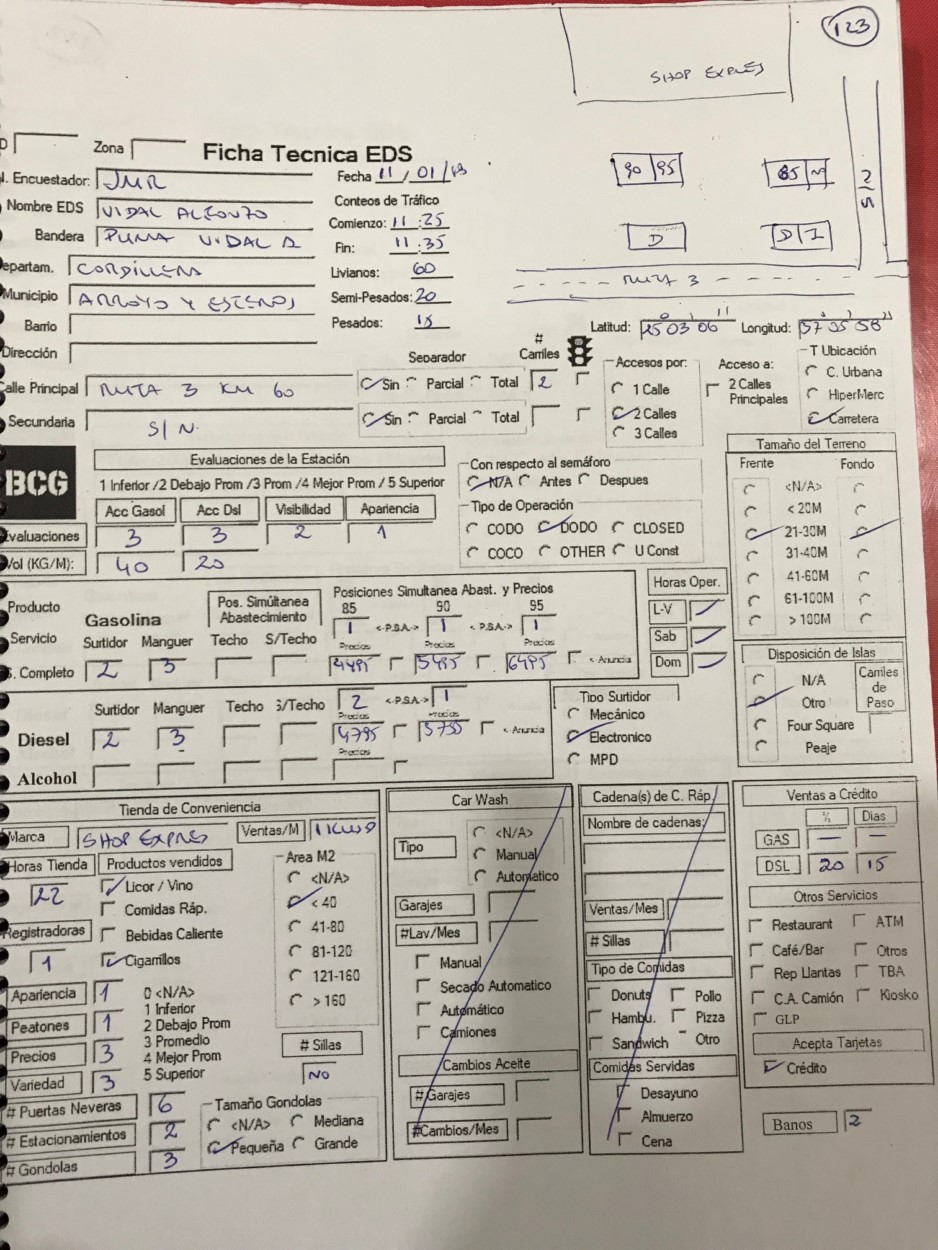 123
SHOP EXPRES
Zona
Ficha Tecnica EDS
Fecha 11 / 01 /
90 95
85
D
D I
S/N
RUTA 3
Encuestador: JMR
Nombre EDS VIDAL ALFONZO
Bandera PUMA VIDAL
Departam. CORDILLERA
Municipio ARROYO Y ESTEROS
Barrio
Dirección
Conteos de Tráfico
Comienzo: 11 : 25
Fin: 11 : 35
Livianos: 60
Semi-Pesados: 20
Pesados: 15
Latitud: 25 03 06 Longitud: 57 05 58
Calle Principal RUTA 3 KM 60
Secundaria S/N.
Separador
# Carriles
Sin Parcial Total 2
Sin Parcial Total
Accesos por:
1 Calle
2 Calles
3 Calles
Acceso a:
2 Calles Principales
T Ubicación
C. Urbana
HiperMerc
Carretera
BCG
Evaluaciones de la Estación
1 Inferior /2 Debajo Prom /3 Prom /4 Mejor Prom / 5 Superior
Acc Gasol Acc Dsl Visibilidad Apariencia
Evaluaciones 3 3 2 1
Vol (KG/M): 40 20
Con respecto al semáforo
N/A Antes Despues
Tipo de Operación
CODO DODO CLOSED
COCO OTHER U Const
Tamaño del Terreno
Frente Fondo
<N/A>
< 20M
21-30M
31-40M
41-60M
61-100M
> 100M
Producto
Servicio
S. Completo
Gasolina
Pos. Simúltanea Abastecimiento
Posiciones Simultanea Abast. y Precios
85 90 95
1 <-P.S.A.-> 1 <-P.S.A.-> 1
Surtidor Manguer Techo S/Techo
Precios Precios Precios
2 3 4495 5495 6495 <- Anuncia
Horas Oper.
L-V
Sab
Dom
Diesel
Surtidor Manguer Techo S/Techo
2 <-P.S.A-> 1
Precios Precios
2 3 4795 5755 <- Anuncia
Precios
Alcohol
Tipo Surtidor
Mecánico
Electronico
MPD
Disposición de Islas
N/A
Otro
Four Square
Peaje
Carriles de Paso
Tienda de Conveniencia
Marca SHOP EXPRES Ventas/M
Horas Tienda 22
Productos vendidos
Licor / Vino
Comidas Ráp.
Bebidas Caliente
Cigarrillos
Registradoras 1
Area M2
<N/A>
< 40
41-80
81-120
121-160
> 160
Apariencia 1
Peatones 1
Precios 3
Variedad 3
0 <N/A>
1 Inferior
2 Debajo Prom
3 Promedio
4 Mejor Prom
5 Superior
# Sillas
NO
# Puertas Neveras 6
# Estacionamientos 2
# Gondolas 3
Tamaño Gondolas
<N/A> Mediana
Pequeña Grande
Car Wash
Tipo
<N/A>
Manual
Automatico
Garajes
#Lav/Mes
Manual
Secado Automatico
Automático
Camiones
Cambios Aceite
#Garajes
#Cambios/Mes
Cadena(s) de C. Ráp.
Nombre de cadenas:
Ventas/Mes
# Sillas
Tipo de Comidas
Donuts Pollo
Hambu. Pizza
Sandwich Otro
Comidas Servidas
Desayuno
Almuerzo
Cena
Ventas a Crédito
% Dias
GAS — —
DSL 20 15
Otros Servicios
Restaurant ATM
Café/Bar Otros
Rep Llantas TBA
C.A. Camión Kiosko
GLP
Acepta Tarjetas
Crédito
Banos 2